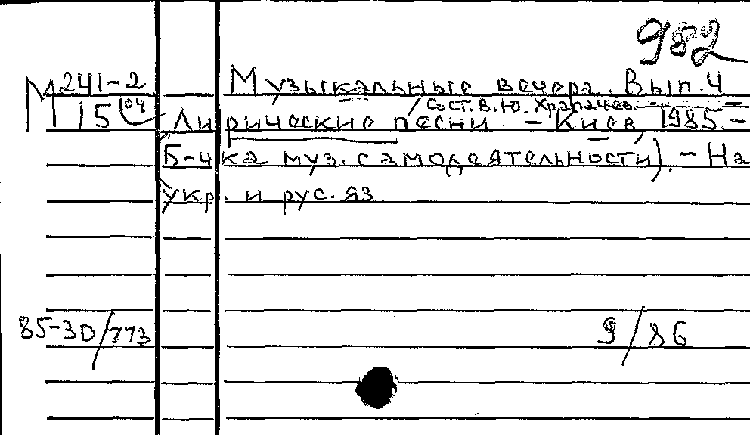 982
М 241-2
15 04
Музыкальные вечера. Вып. 4
/Сост. В.Ю. Храпачев.
Лирические песни. - Киев, 1985. -
(Б-чка муз. самодеятельности). - На
укр. и рус. яз
85-30/773
9/86